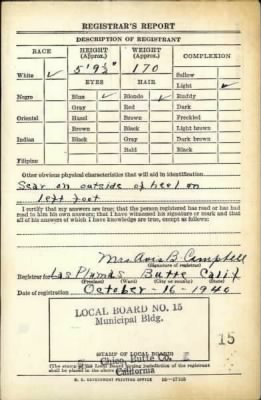 REGISTRAR'S REPORT
DESCRIPTION OF REGISTRANT
RACE HEIGHT (Approx.) WEIGHT (Approx.) COMPLEXION
5' 9½" 170
White ✓ Sallow
EYES HAIR Light ✓
Negro Blue ✓ Blonde ✓ Ruddy
Gray Red Dark
Oriental Hazel Brown Freckled
Brown Black Light brown
Indian Black Gray Dark brown
Bald Black
Filipino
Other obvious physical characteristics that will aid in identification
Scar on outside of heel on
left foot
I certify that my answers are true; that the person registered has read or has had
read to him his own answers; that I have witnessed his signature or mark and that
all of his answers of which I have knowledge are true, except as follows:
Mrs Avis B. Campbell
(Signature of registrar)
Registrar for Las Plumas Butte Calif
(Precinct) (Ward) (City or county) (State)
Date of registration October-16-1940
LOCAL BOARD NO. 15
Municipal Bldg.
15
Chico, Butte Co.
STAMP OF LOCAL BOARD
California
(The stamp of the Local Board having jurisdiction of the registrant
shall be placed in the above space.)
U. S. GOVERNMENT PRINTING OFFICE 16—17105